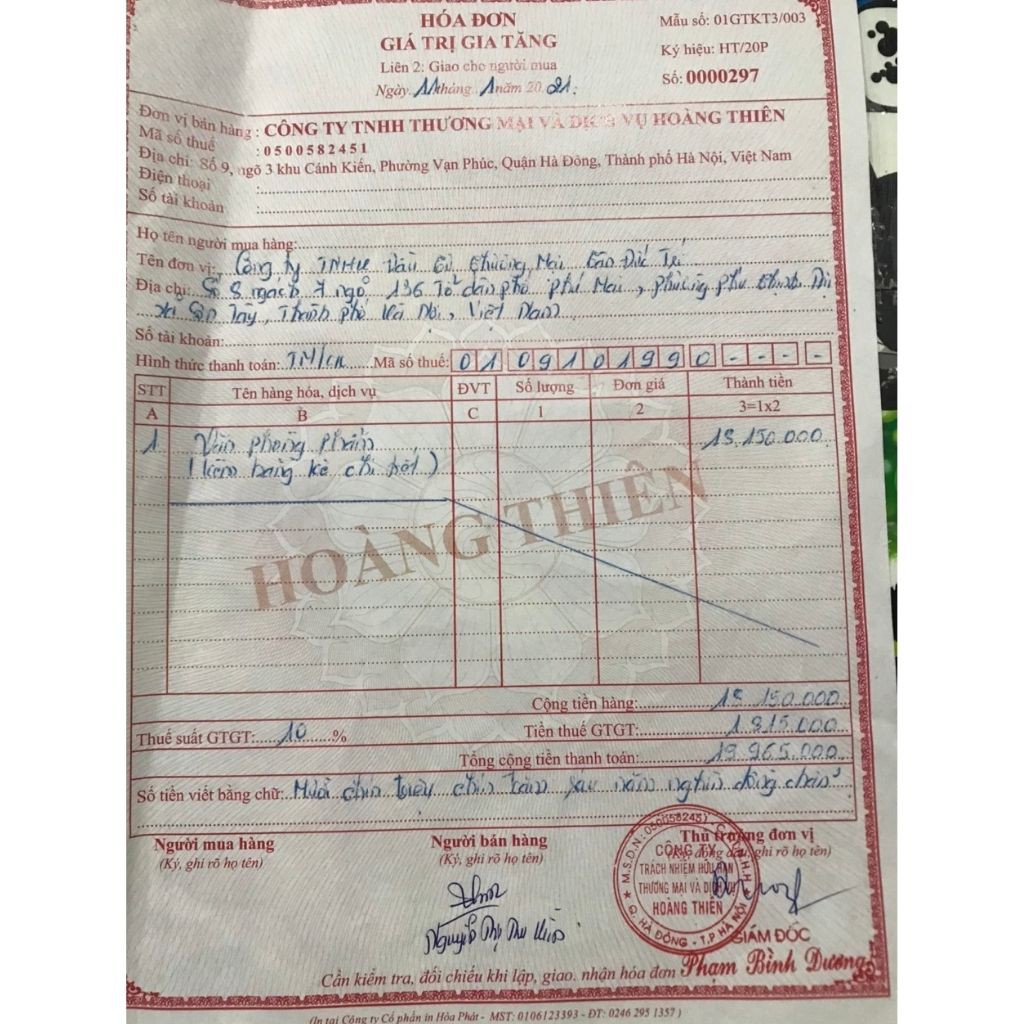 HÓA ĐƠN
GIÁ TRỊ GIA TĂNG
Liên 2: Giao cho người mua
Ngày 11 tháng 1 năm 2021
Mẫu số: 01GTKT3/003
Ký hiệu: HT/20P
Số: 0000297
Đơn vị bán hàng : CÔNG TY TNHH THƯƠNG MẠI VÀ DỊCH VỤ HOÀNG THIÊN
Mã số thuế : 0500582451
Địa chỉ: Số 9, ngõ 3 khu Cánh Kiến, Phường Vạn Phúc, Quận Hà Đông, Thành phố Hà Nội, Việt Nam
Điện thoại :
Số tài khoản :
Họ tên người mua hàng:
Tên đơn vị: Công ty TNHH Đầu tư Thương Mại Đức Trí
Địa chỉ: Số 8 ngách 7 ngõ 136 Tổ dân phố Phú Mai, phường Phú Thịnh, Thị
xã Sơn Tây, Thành phố Hà Nội, Việt Nam
Số tài khoản:
Hình thức thanh toán: TM/CK Mã số thuế: 0109101990 - - - -
STT Tên hàng hóa, dịch vụ ĐVT Số lượng Đơn giá Thành tiền
A B C 1 2 3=1x2
1 Văn phòng phẩm 18.150.000
(kèm bảng kê chi tiết)
HOÀNG THIÊN
Cộng tiền hàng: 18.150.000
Thuế suất GTGT: 10 % Tiền thuế GTGT: 1.815.000
Tổng cộng tiền thanh toán: 19.965.000
Số tiền viết bằng chữ: Mười chín triệu chín trăm sáu năm nghìn đồng chẵn
Người mua hàng Người bán hàng Thủ trưởng đơn vị
(Ký, ghi rõ họ tên) (Ký, ghi rõ họ tên) (Ký, đóng dấu, ghi rõ họ tên)
M.S.D.N: 0500582451 - C.T.T.N.H.H
CÔNG TY
TRÁCH NHIỆM HỮU HẠN
THƯƠNG MẠI VÀ DỊCH VỤ
HOÀNG THIÊN
Q. HÀ ĐÔNG - T.P HÀ NỘI
Nguyễn Thị Thu
GIÁM ĐỐC
Phạm Bình Dương
Cần kiểm tra, đối chiếu khi lập, giao, nhận hóa đơn
(In tại Công ty Cổ phần in Hòa Phát - MST: 0106123393 - ĐT: 0246 295 1357 )